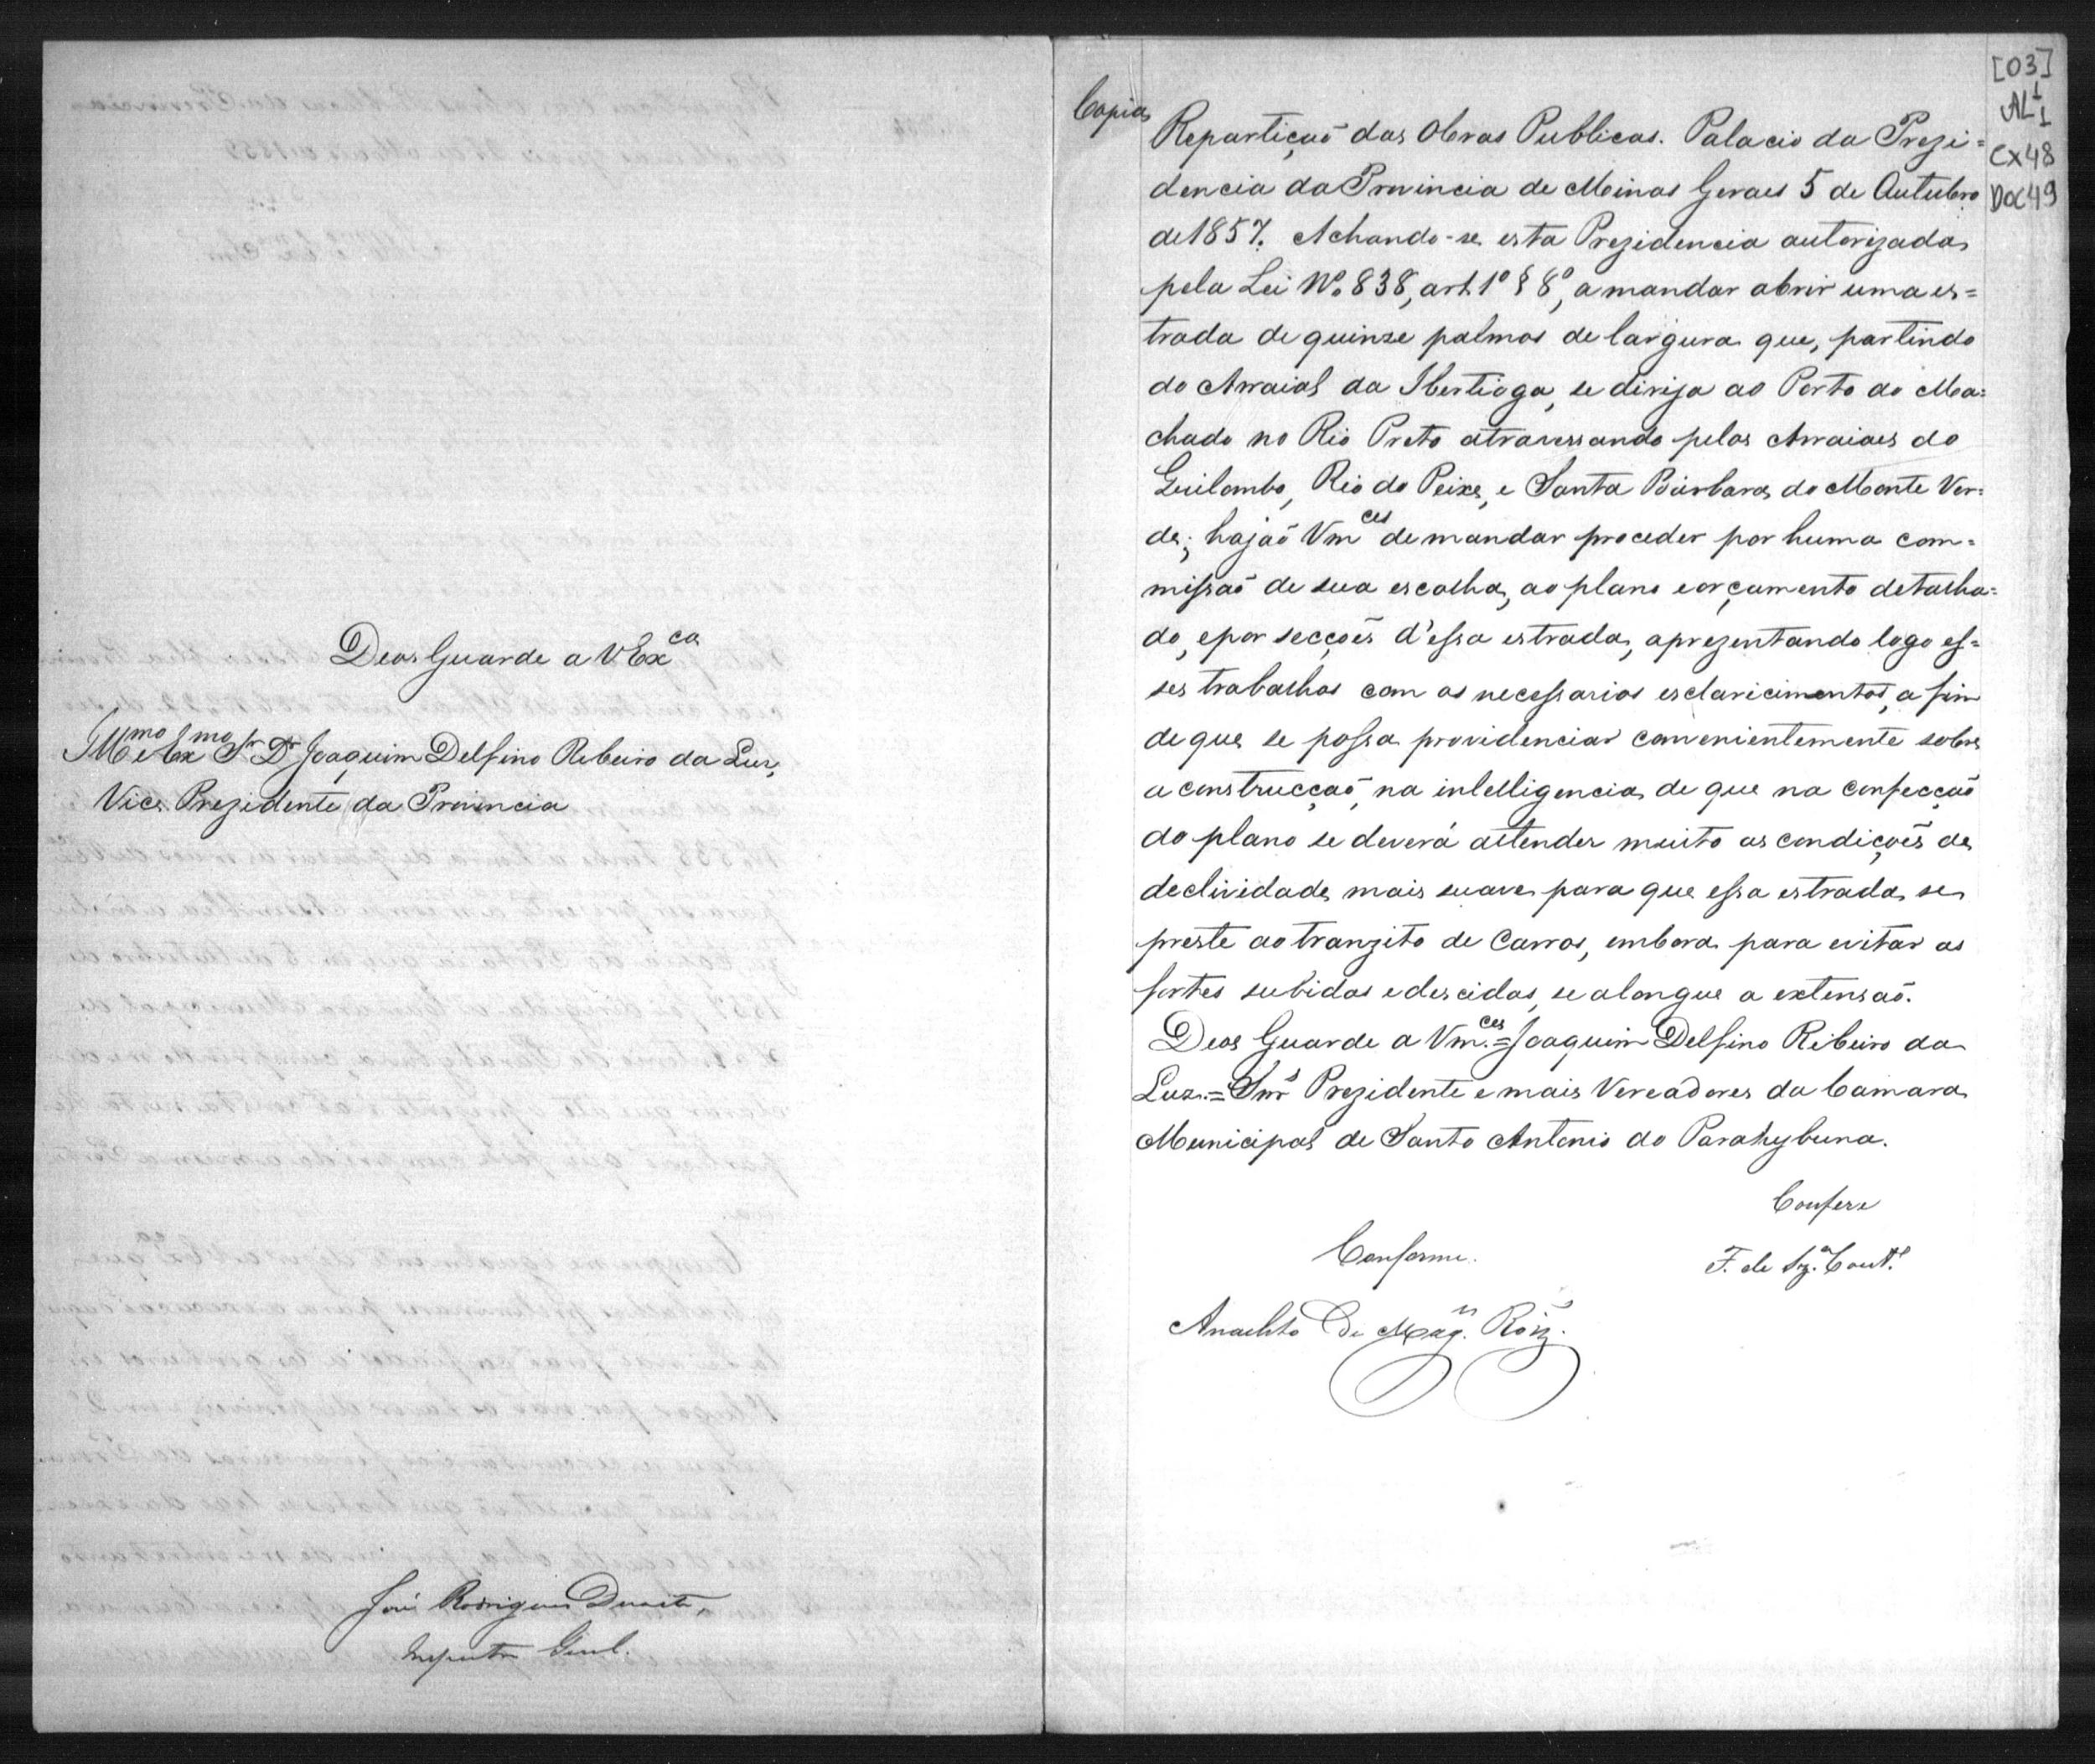 Deos Guarde a V Ex.ca
Illmo e Exmo Sr Dr Joaquim Delfino Ribeiro da Luz,
Vice Prezidente da Provincia
José Rodrigues Duarte,
Inspector Geral.
[03]
AL-1
1
Cx48
Doc49
Copia
Repartiçaõ das Obras Publicas. Palacio da Prezi=
dencia da Provincia de Minas Geraes 5 de Outubro
de 1857. Achando-se esta Prezidencia autorizada
pela Lei No 838, art. 1º § 8º, a mandar abrir uma es=
trada de quinze palmos de largura que, partindo
do Arraial da Ibertioga, se dirija ao Porto do Ma=
chado no Rio Preto atravessando pelos Arraiaes do
Quilombo, Rio do Peixe, e Santa Barbara do Monte Ver=
de; hajaõ Vmces de mandar proceder por huma com=
missaõ de sua escolha, ao plano e orçamento detalha=
do, e por secçoẽs d'essa estrada, aprezentando logo es=
ses trabalhos com os necessarios esclaricimentos, a fim
de que se possa providenciar convenientemente sobre
a construcçaõ, na intelligencia de que na confecçaõ
do plano se deverá attender muito as condiçoẽs de
declividade mais suave para que essa estrada se
preste ao tranzito de Carros, embora para evitar as
fortes subidas e descidas, se alongue a extensaõ.
Deos Guarde a Vm.ces = Joaquim Delfino Ribeiro da
Luz. = Snrs Prezidente e mais Vereadores da Camara
Municipal de Santo Antonio do Parahybuna.
Confere
Conforme.
F. de Sz.a Cout.o
Anacleto de Mag.es Roiz.